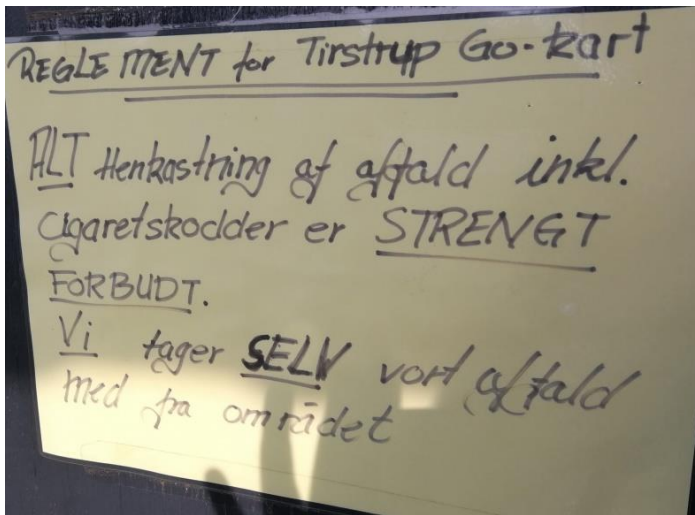 REGLEMENT for Tirstrup Go-kart
ALT Henkastning af affald inkl.
Cigaretskodder er STRENGT
FORBUDT.
Vi tager SELV vort affald
med fra området